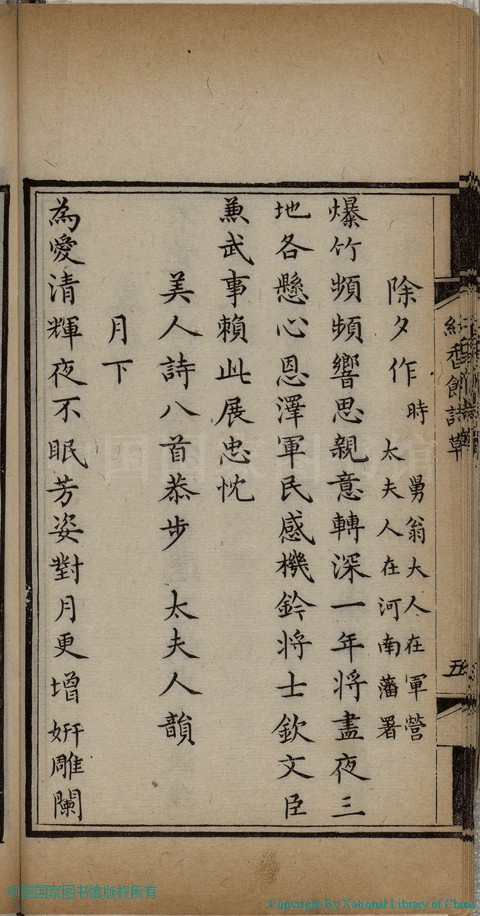 紅香館詩草
五
除夕作
時 舅翁大人在軍營
太夫人在河南藩署
爆竹頻頻響思親意轉深一年将盡夜三
地各懸心恩澤軍民感機鈐将士欽文臣
兼武事賴此展忠忱
美人詩八首恭步 太夫人韻
月下
為愛清輝夜不眠芳姿對月更增妍雕闌
中国国家图书馆版权所有
Copyright by National Library of China